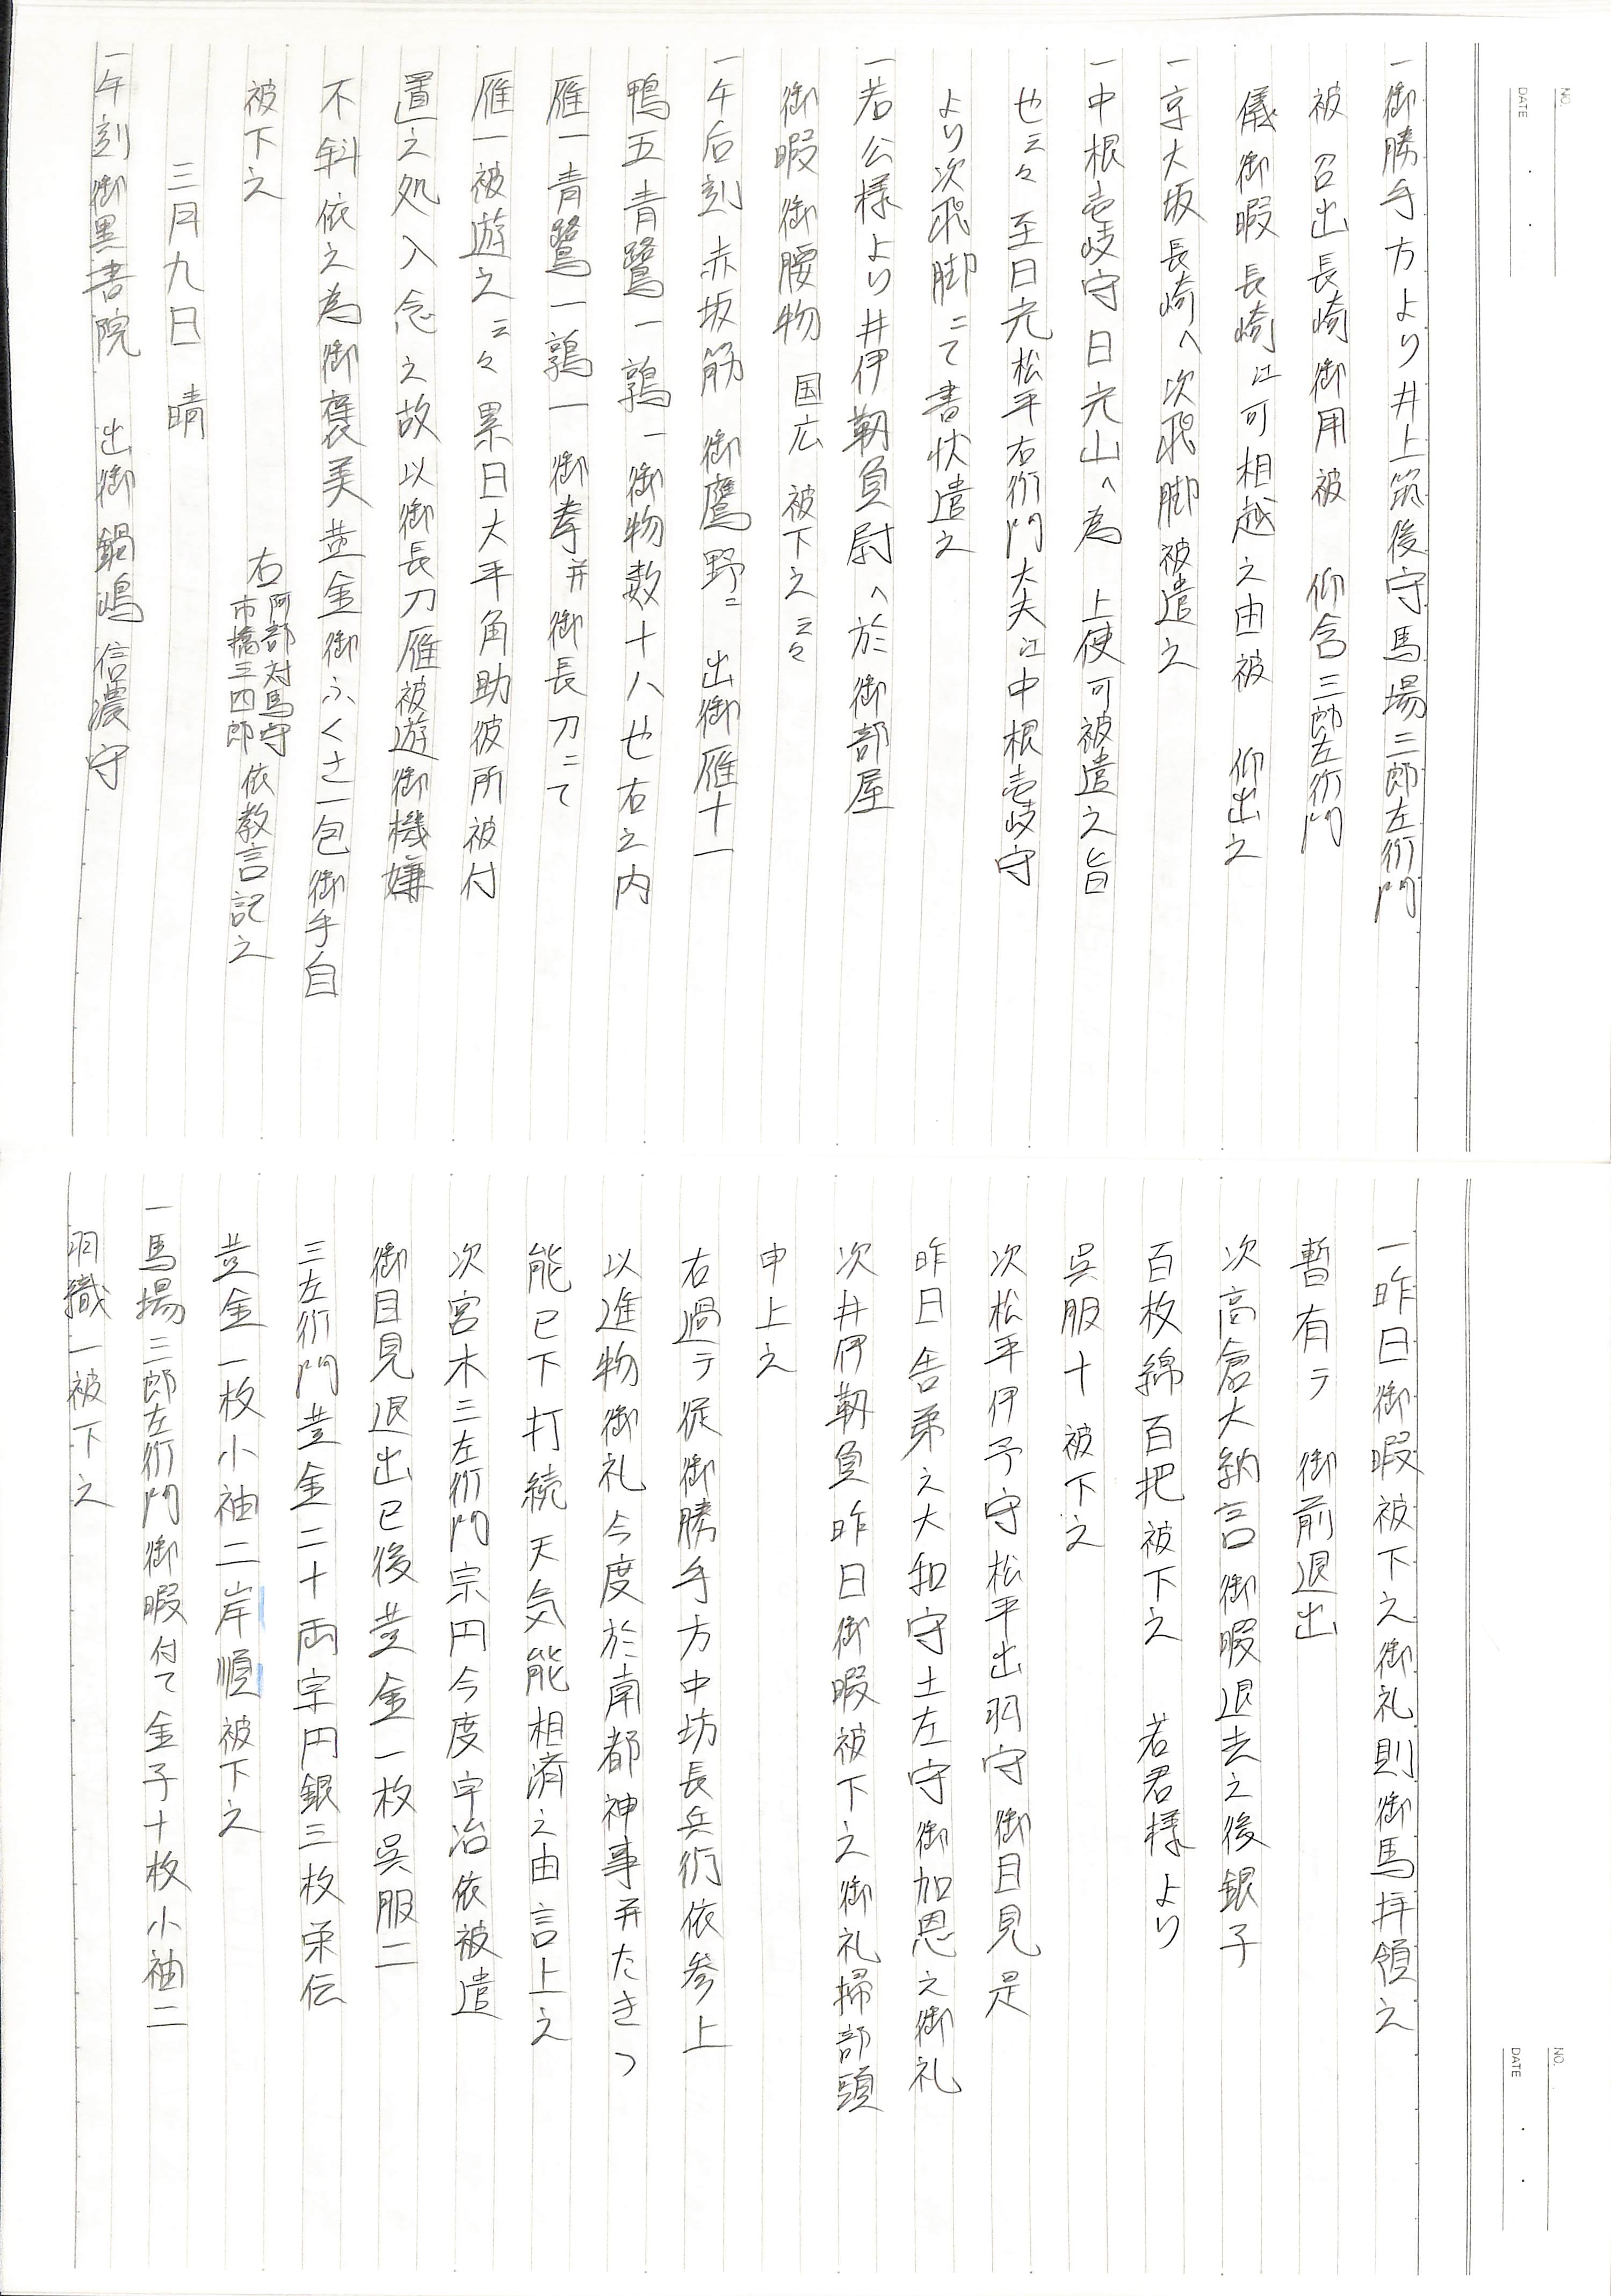 NO.
DATE
一御勝手方より井上筑後守馬場三郎左衛門
被召出長崎御用被 仰含三郎左衛門
儀御暇長崎江可相越之由被 仰出之
一京大坂長崎へ次飛脚被遣之
一中根壱岐守日光山へ為 上使可被遣之旨
也云々至日光松平右衛門大夫江中根壱岐守
より次飛脚ニて書状遣之
一若公様より井伊靱負尉へ於御部屋
御暇御腰物 国広 被下之云々
一午后刻赤坂筋 御鷹野ニ 出御雁十一
鴨五青鷺一鶉一御物数十八也右之内
雁一青鷺一鶉一 御拳并御長刀ニて
雁一被遊之云々累日大平角助彼所被付
置之処入念之故以御長刀雁被遊御機嫌
不斜依之為御褒美黄金御ふくさ一包御手自
被下之
右 阿部対馬守 市橋三四郎 依教言記之
三月九日 晴
一午刻御黒書院 出御鍋嶋信濃守
NO.
DATE
一昨日御暇被下之御礼則御馬拝領之
暫有テ 御前退出
次高倉大納言御暇退去之後銀子
百枚綿百把被下之 若君様より
呉服十被下之
次松平伊予守松平出羽守御目見是
昨日舎弟之大和守土左守御加恩之御礼
次井伊靱負昨日御暇被下之御礼掃部頭
申上之
右過テ従御勝手方中坊長兵衛依参上
以進物御礼今度於南都神事并たきつ
能已下打続天気能相済之由言上之
次宮木三左衛門宗円今度宇治依被遣
御目見退出已後黄金一枚呉服二
三左衛門黄金二十両宗円銀三枚栄伝
黄金一枚小袖二岸順被下之
一馬場三郎左衛門御暇付て金子十枚小袖二
羽織一被下之